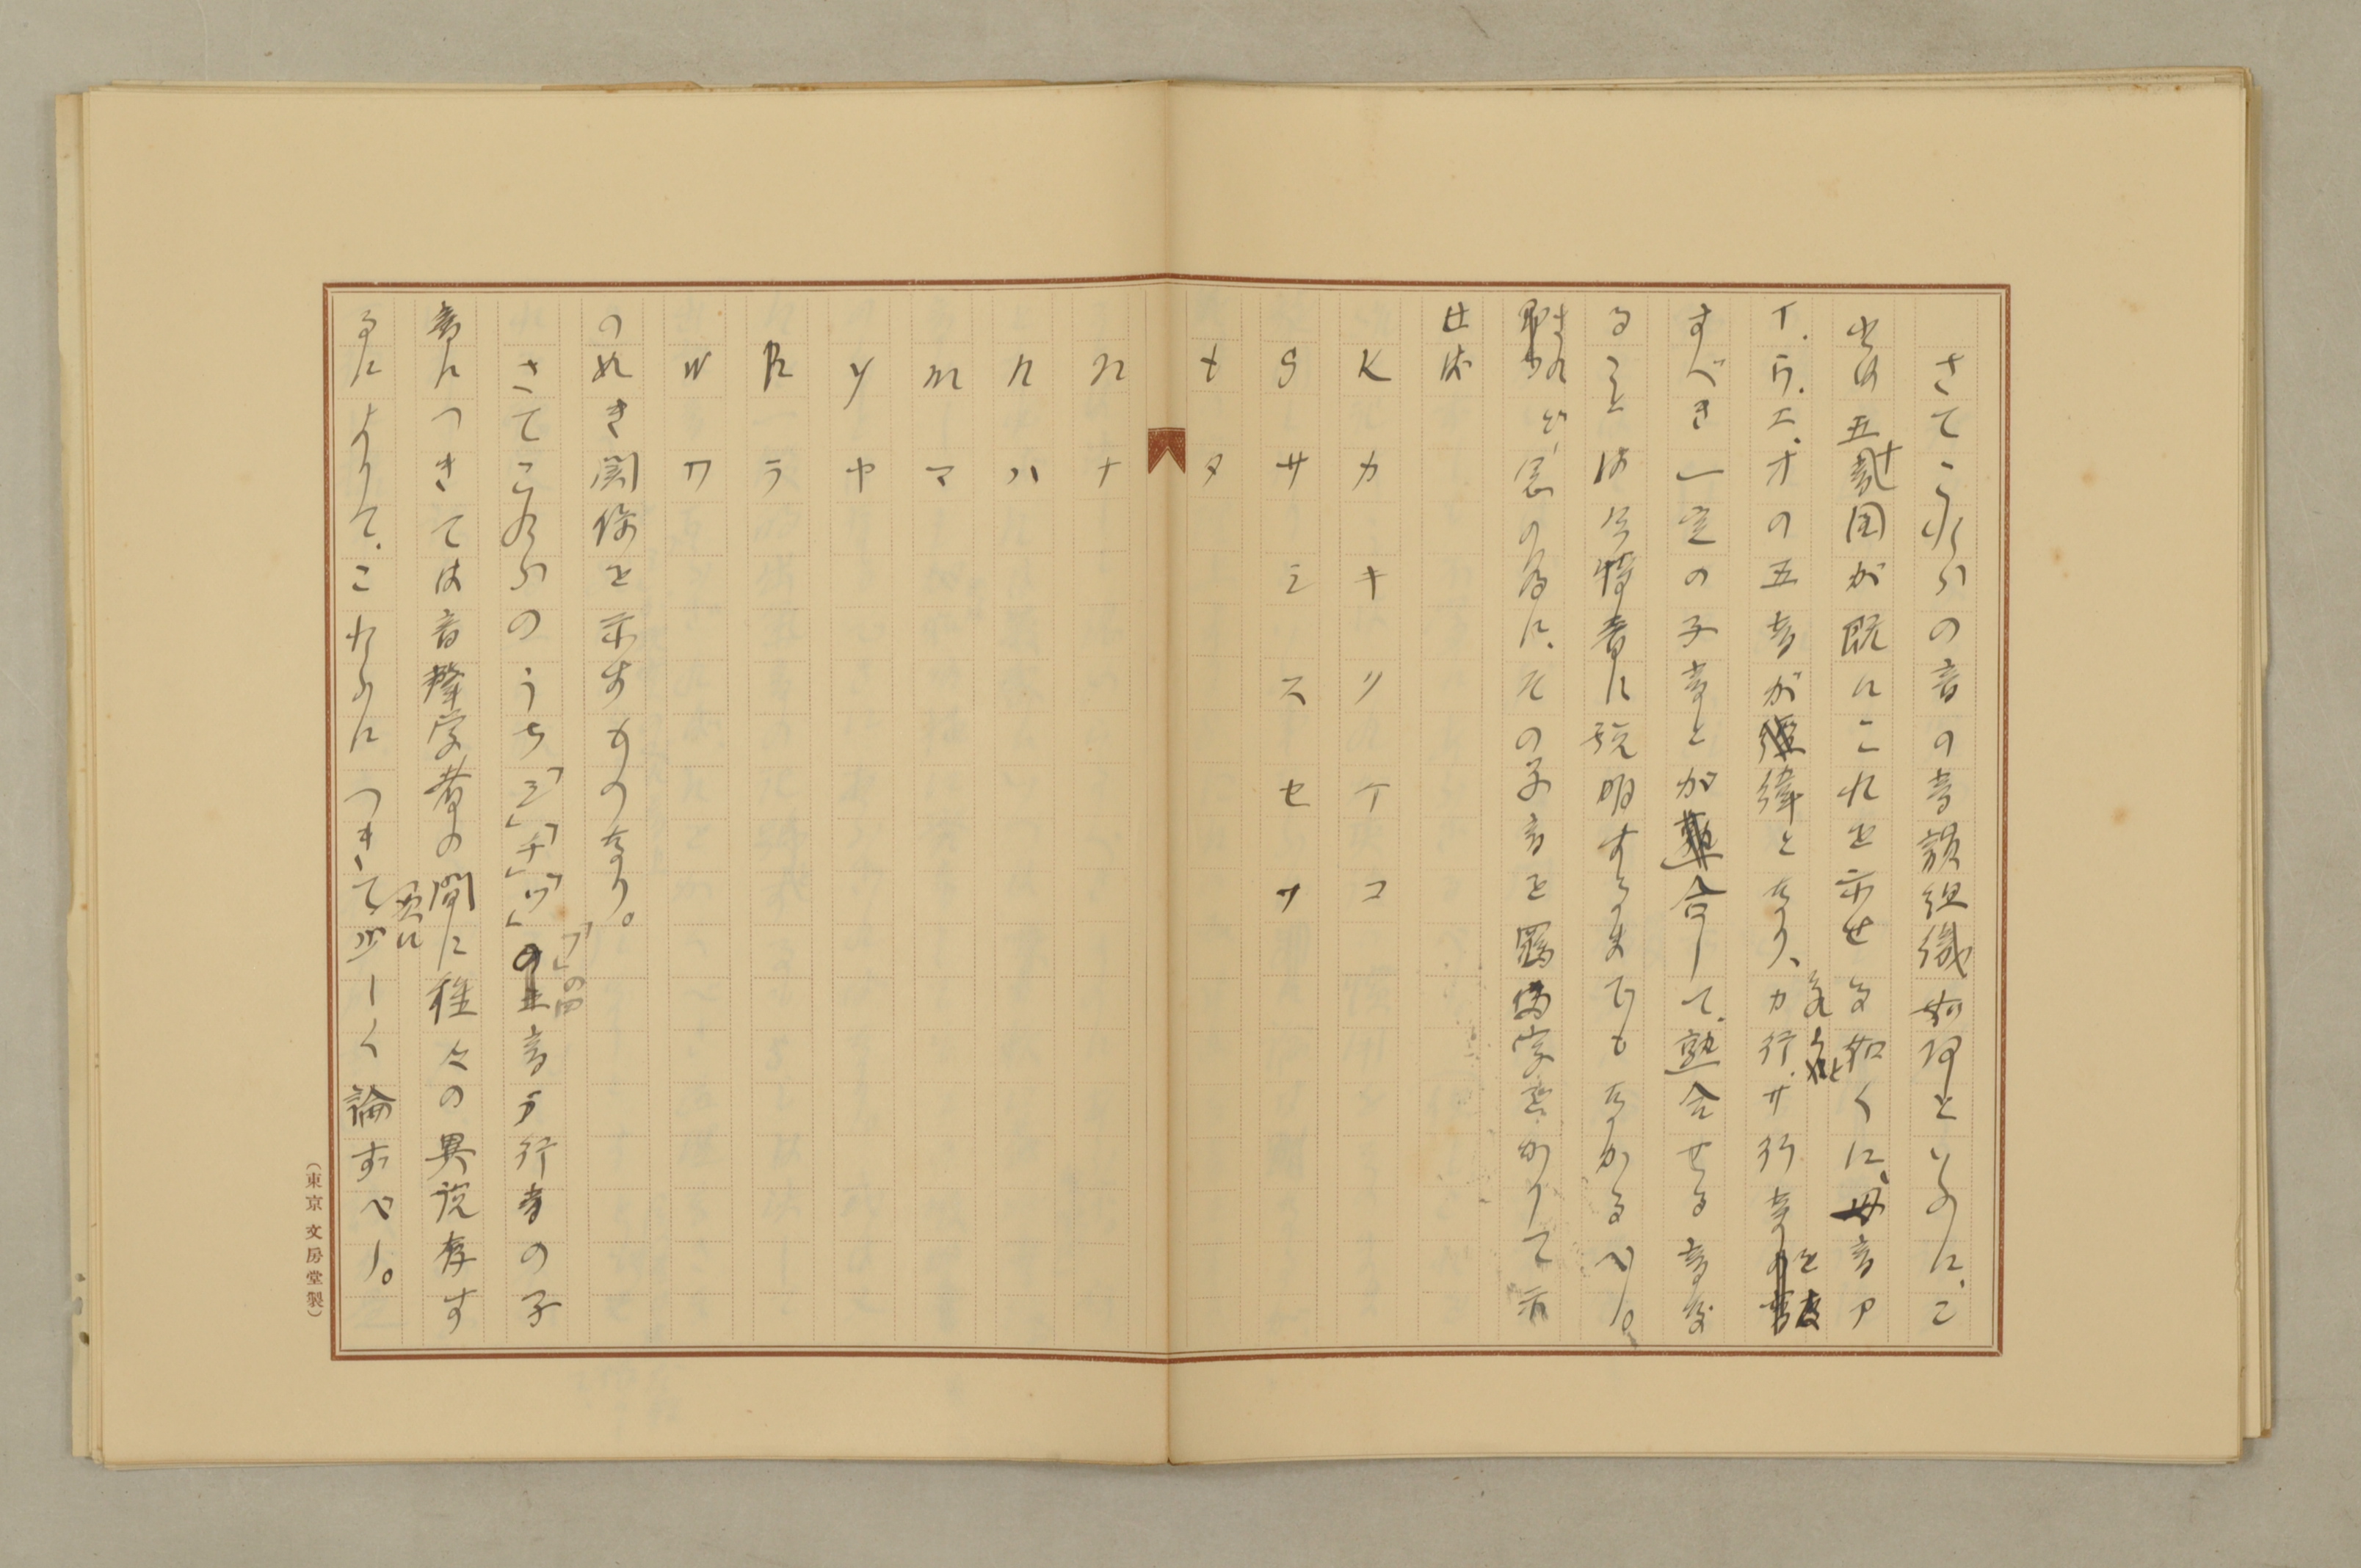 さてこれらの音の音韻組織如何といふに、こ
は五十音図が既にこれを示せる如くに、母音ア
イ.ウ.エ.オの五音が緯となり、カ行.サ行音を
すべき一定の子音とが合して、熟合せる音な
ることは今特書に説明するまでもなかるべし。
されど、念の為に、その子音を羅馬字書かりて示
せば
K カ キ ク ケ コ
S サ シ ス セ ソ
t タ
n ナ
h ハ
m マ
y ヤ
R ラ
W ワ
の如き関係を示すものなり。
さてこれらのうち「シ」「チ」「ツ」「フ」の四音ラ行音の子
音につきては音声学者の間に種々の異説存す
るによりて、これらにつきて更に少しく論ずべし。
(東京 文房堂製)